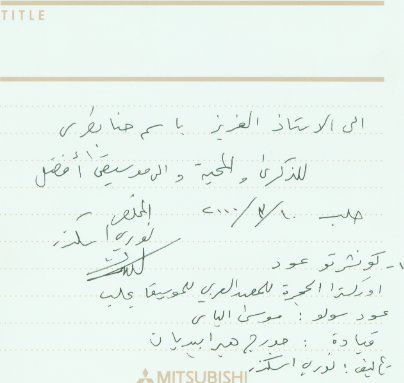 TITLE
الى الاستاذ العزيز باسم حنا بطرس
للذكرى والمحبة والى موسيقى أفضل
حلب ٢٠٠٠/٣/١٠ المخلص
نوري اسكندر
١- كونشرتو عود
اوركسترا الحجرة للمعهد العربي للموسيقا بحلب
عود سولو : موسى الياس
قيادة : جورج هيرابيديان
تأليف : نوري اسكندر
MITSUBISHI